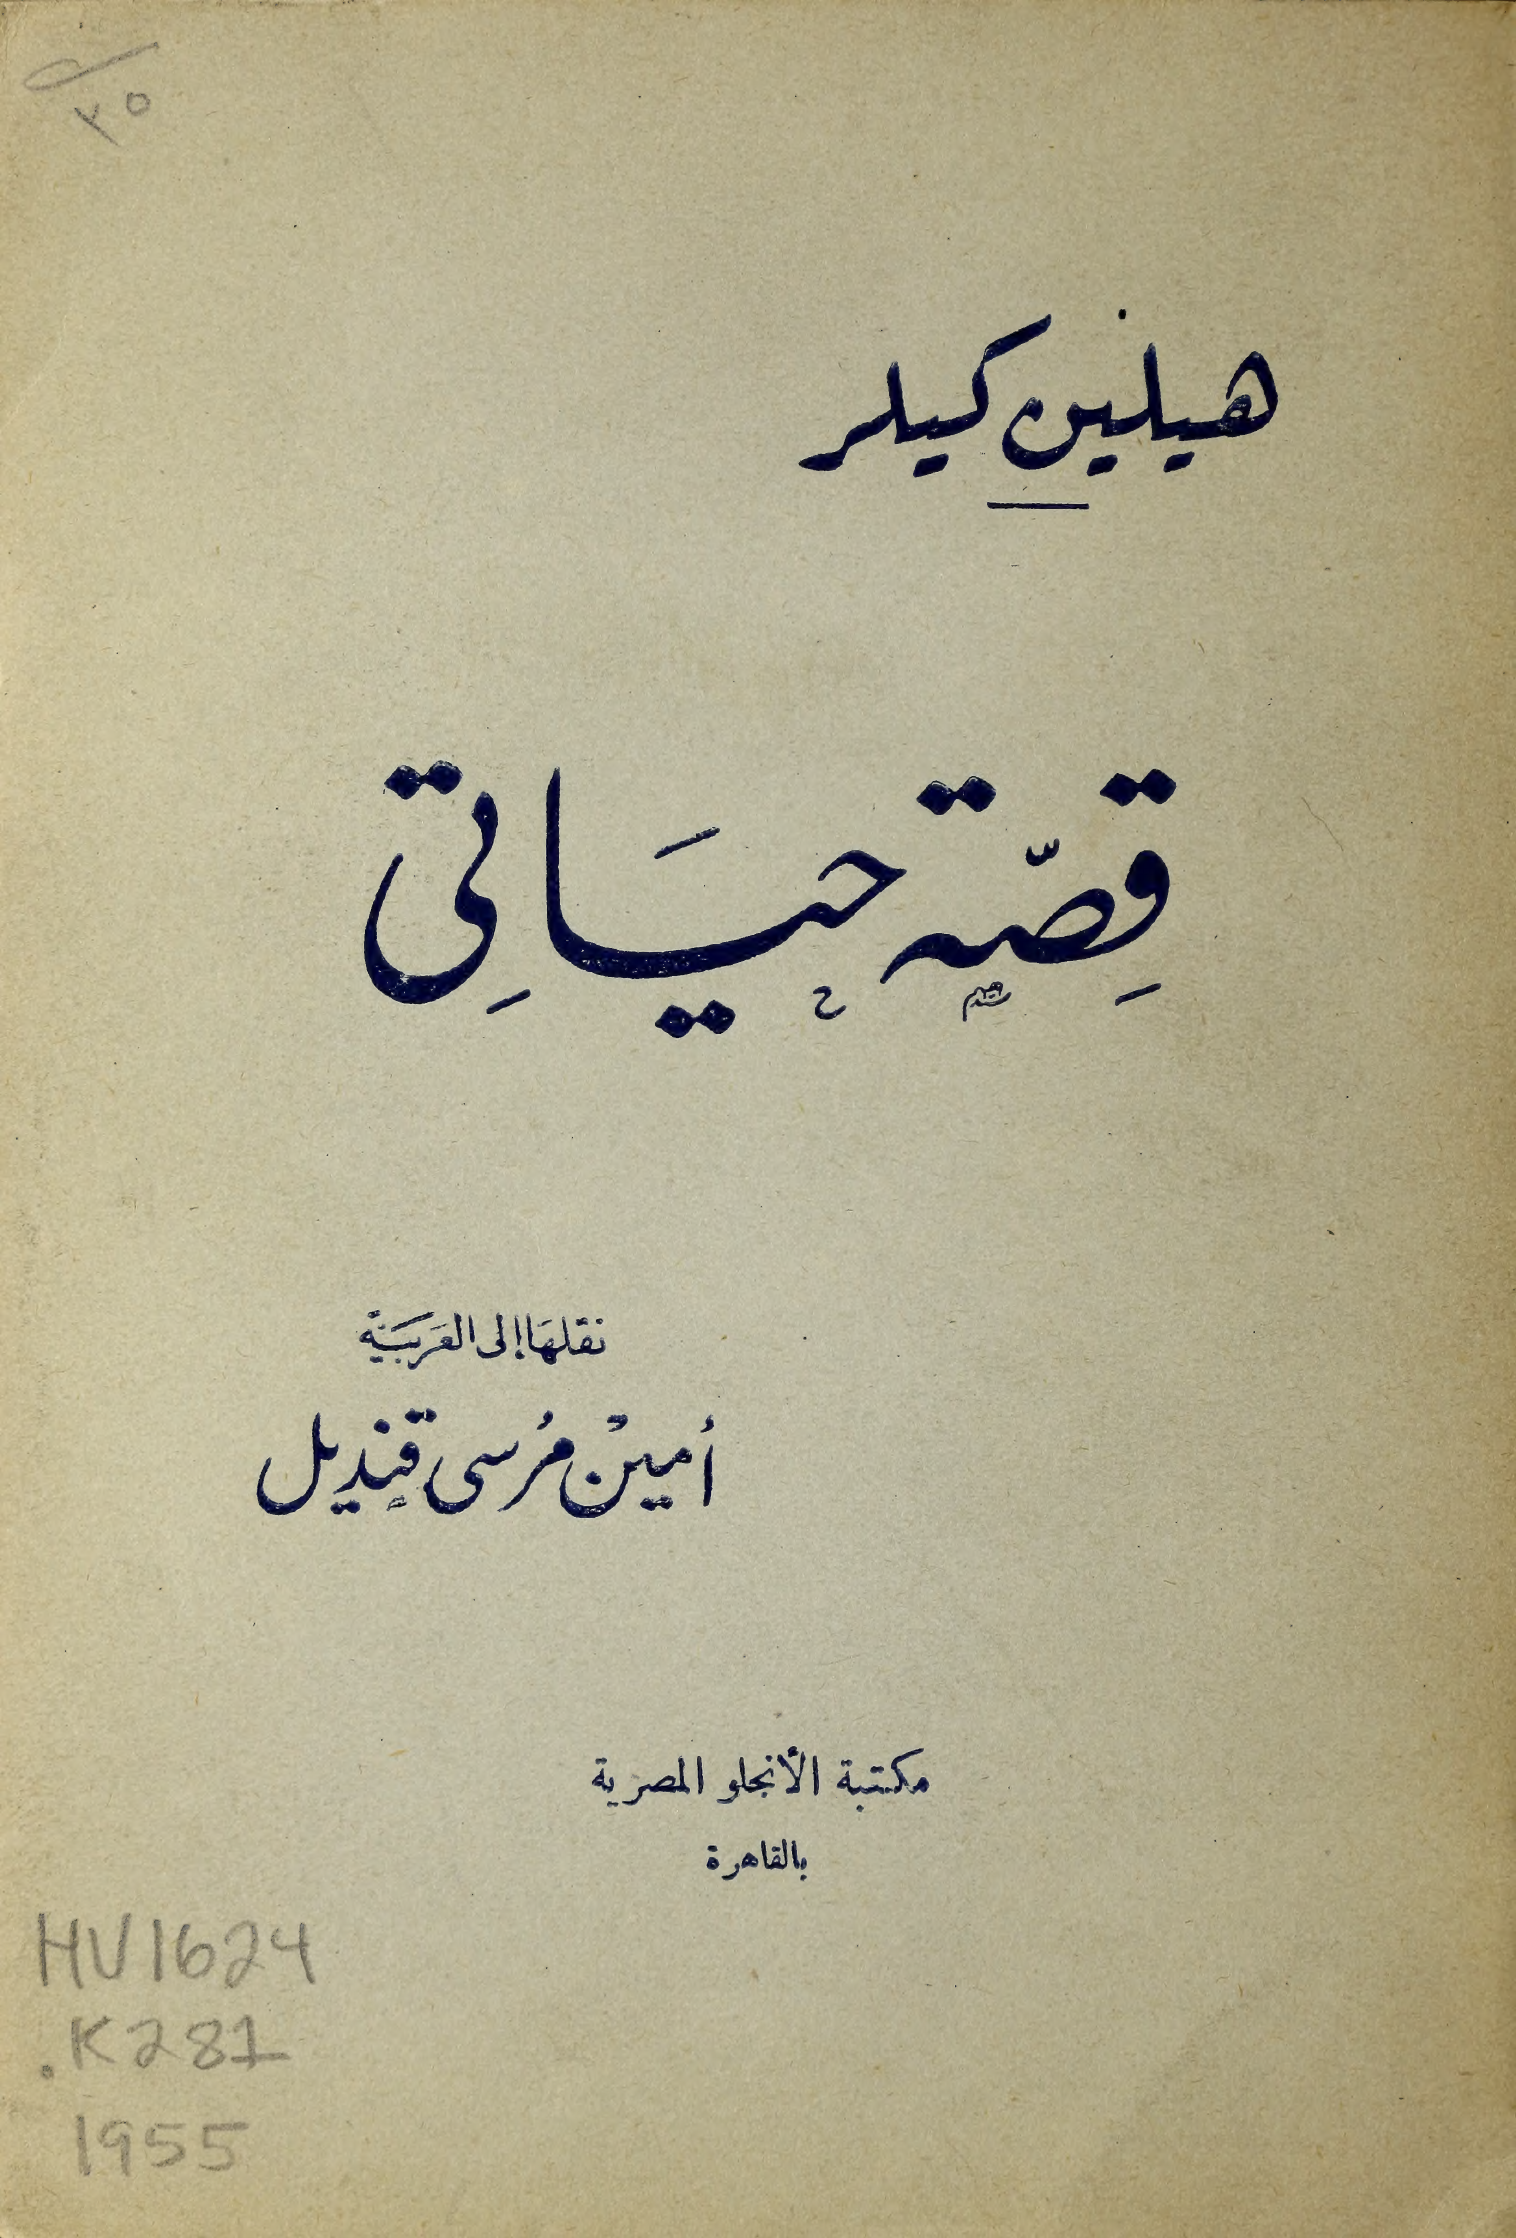 ٢٥
هيلين كيلر
قِصّة حيَاتِى
نقلهَا إلى العَربَيَّة
أمينْ مُرسى قنديل
مكتبة الأنجلو المصرية
بالقاهرة
HV1624
.K281
1955